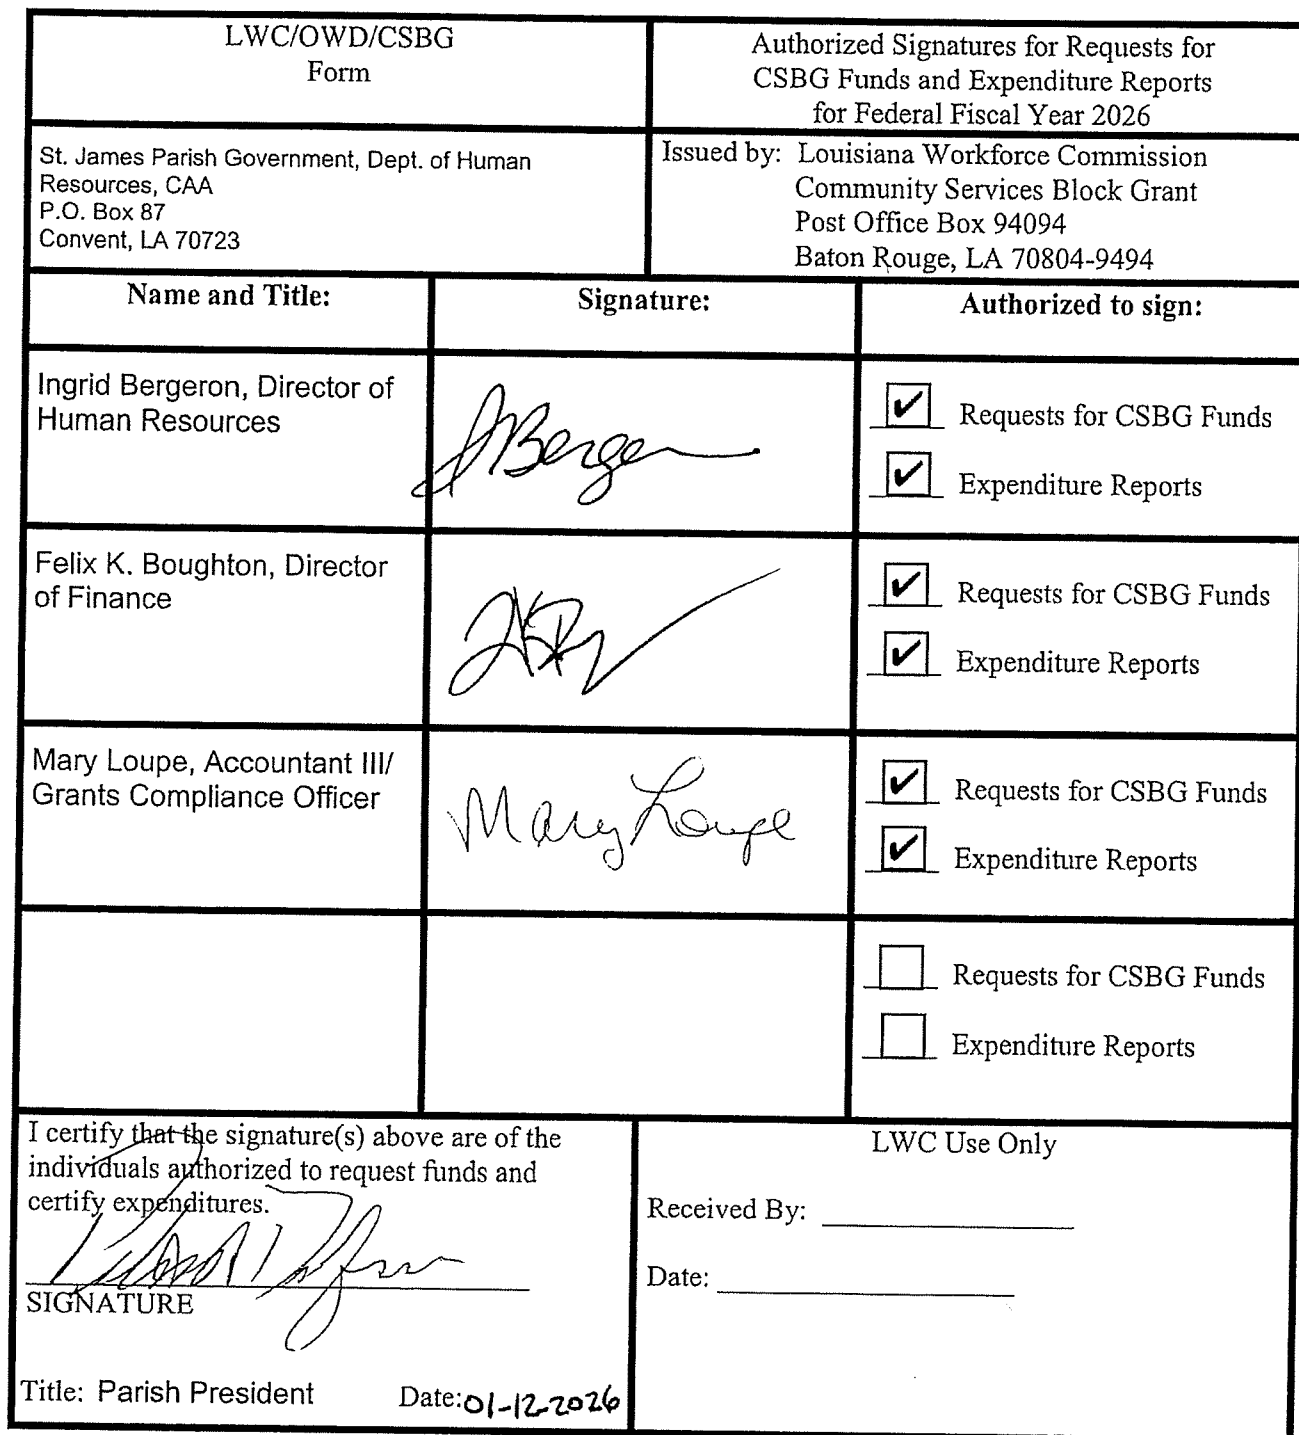 LWC/OWD/CSBG
Form
Authorized Signatures for Requests for
CSBG Funds and Expenditure Reports
for Federal Fiscal Year 2026
St. James Parish Government, Dept. of Human
Resources, CAA
P.O. Box 87
Convent, LA 70723
Issued by: Louisiana Workforce Commission
Community Services Block Grant
Post Office Box 94094
Baton Rouge, LA 70804-9494
Name and Title:
Signature:
Authorized to sign:
Ingrid Bergeron, Director of
Human Resources
Requests for CSBG Funds
Expenditure Reports
Felix K. Boughton, Director
of Finance
Requests for CSBG Funds
Expenditure Reports
Mary Loupe, Accountant III/
Grants Compliance Officer
Mary Loupe
Requests for CSBG Funds
Expenditure Reports
Requests for CSBG Funds
Expenditure Reports
I certify that the signature(s) above are of the
individuals authorized to request funds and
certify expenditures.
SIGNATURE
Title: Parish President Date: 01-12-2026
LWC Use Only
Received By:
Date: